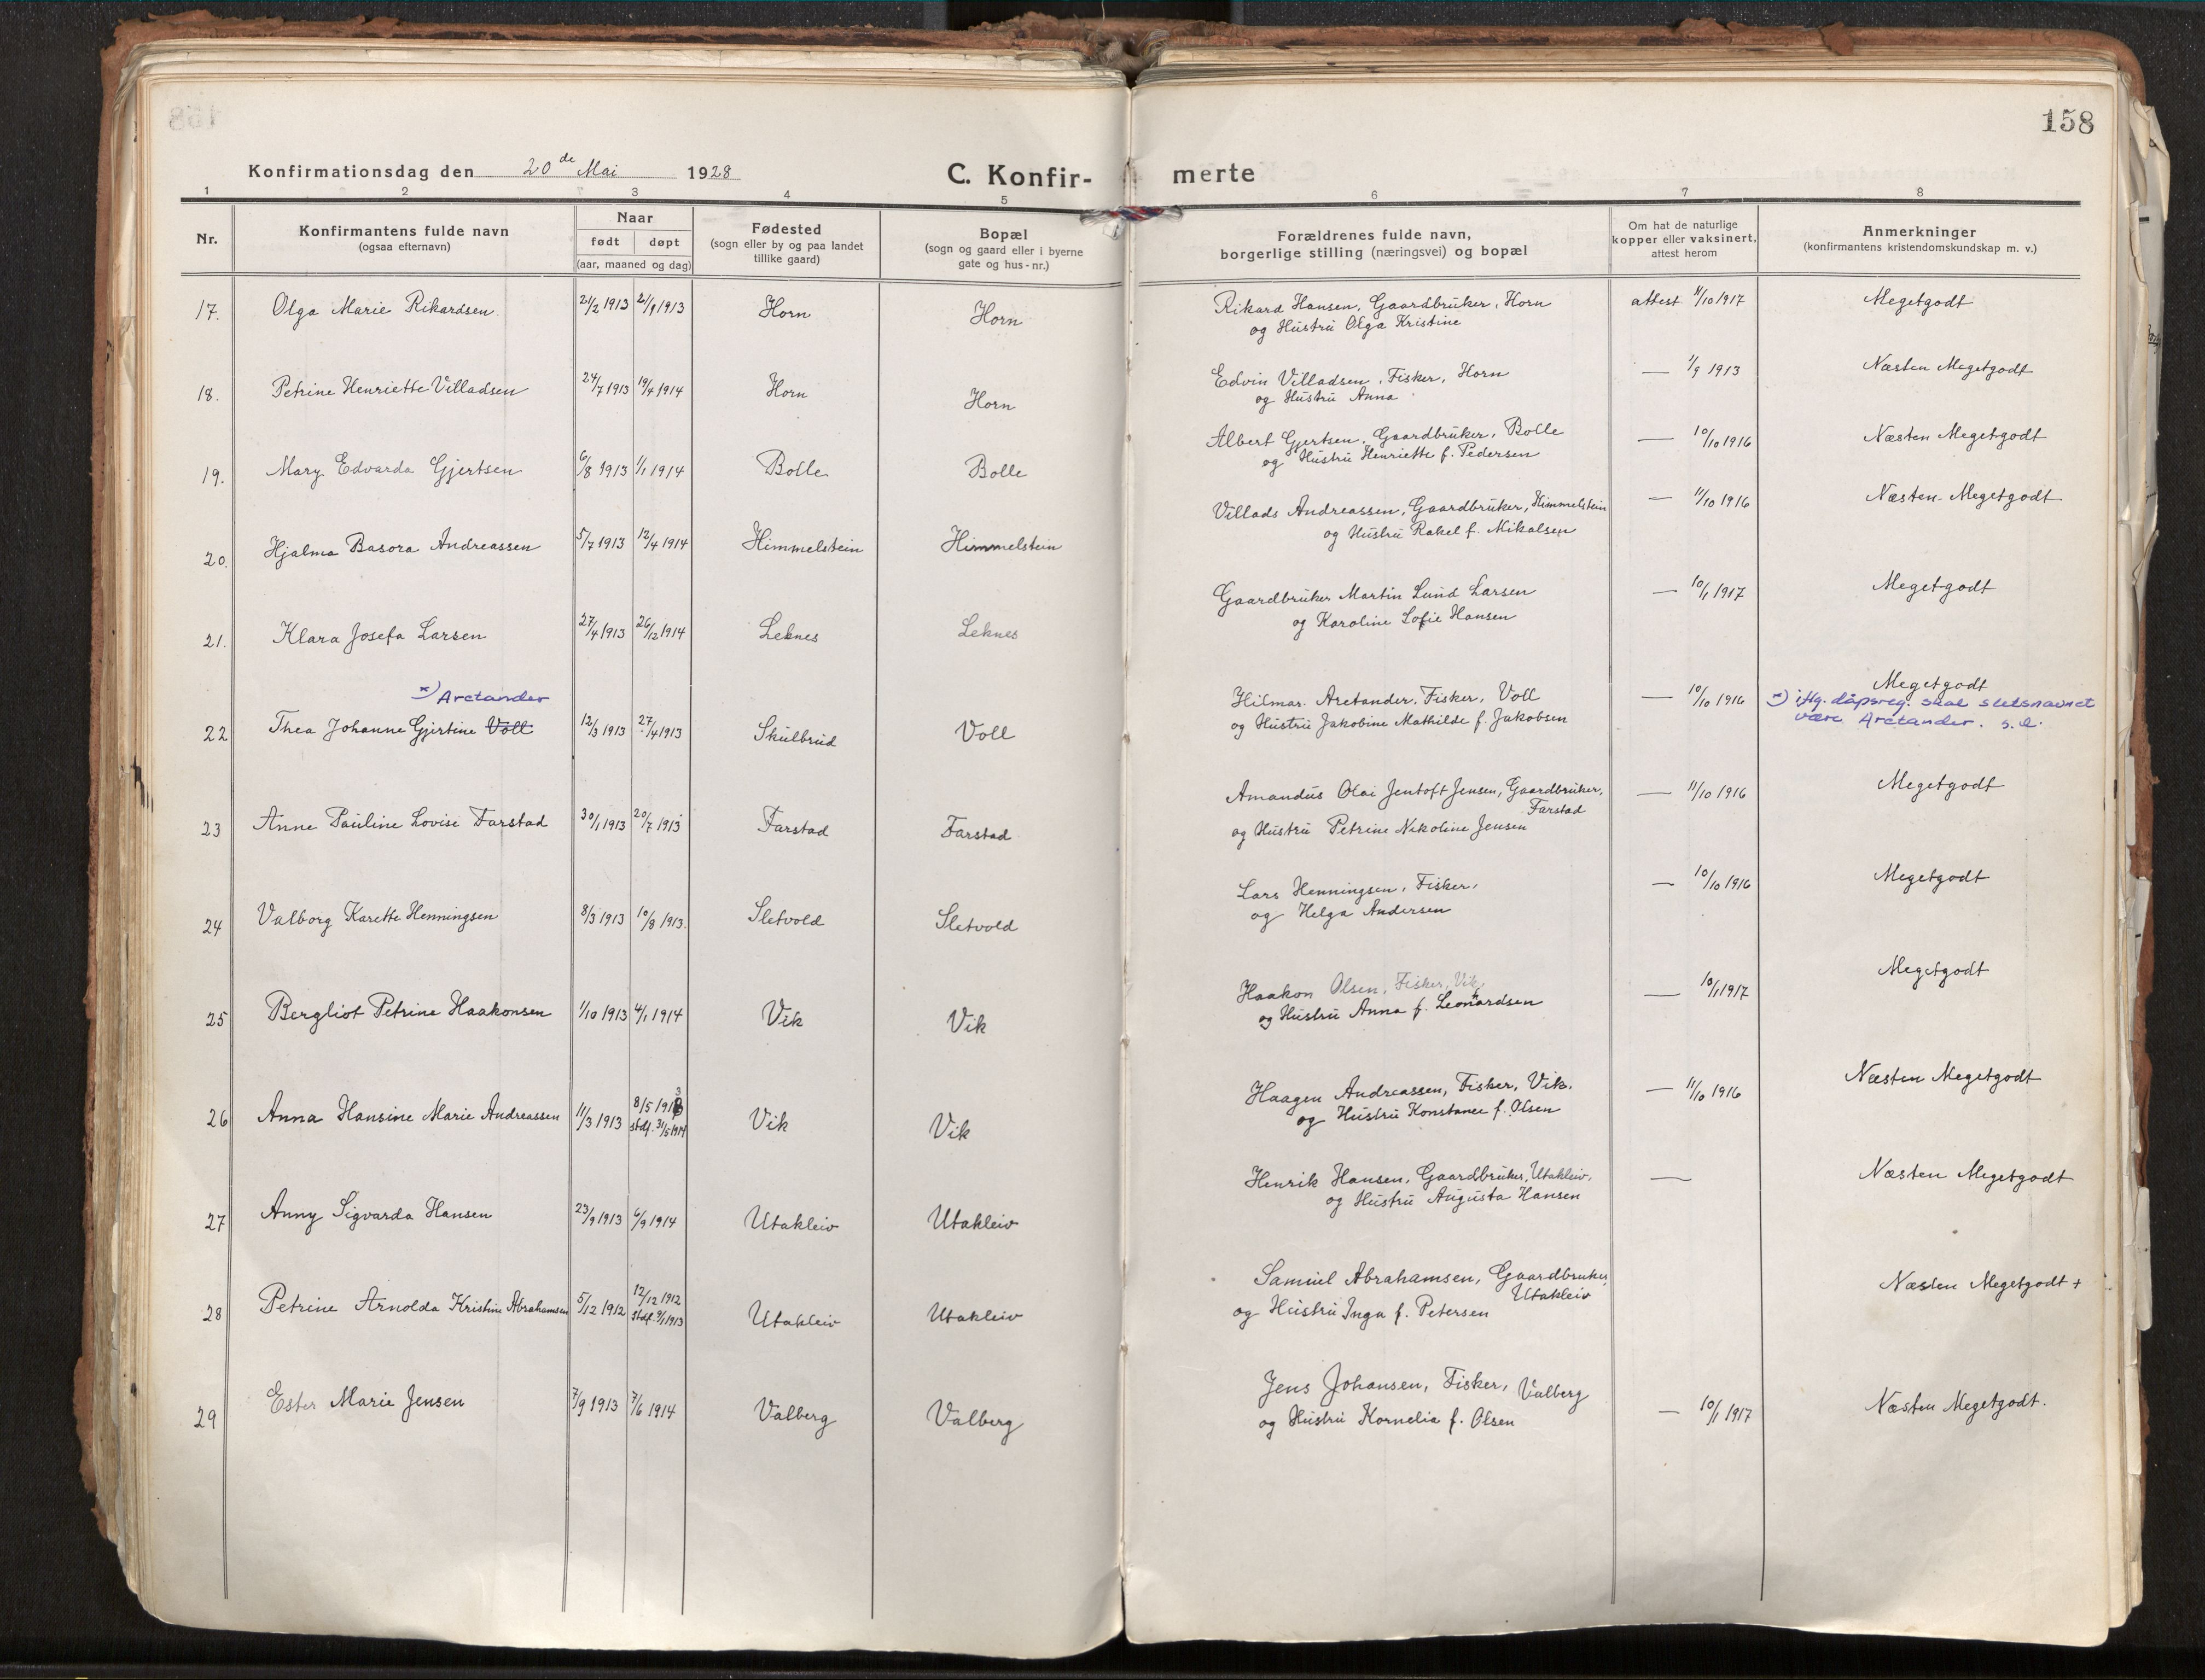 158
Konfirmationsdag den 20de Mai 1928 C. Konfir- merte
1 2 3 4 5 6 7 8
Nr. Konfirmantens fulde navn (ogsaa efternavn)
Naar født døpt (aar, maaned og dag)
Fødested (sogn eller by og paa landet tillike gaard)
Bopæl (sogn og gaard eller i byerne gate og hus-nr.)
Forældrenes fulde navn, borgerlige stilling (næringsvei) og bopæl
Om hat de naturlige kopper eller vaksinert, attest herom
Anmerkninger (konfirmantens kristendomskundskap m. v.)
17. Olga Marie Rikardsen 21/2 1913 21/9 1913 Horn Horn Rikard Hansen, Gaardbruker, Horn attest 11/10 1917 Megetgodt
og Hustru Olga Kristine
18. Petrine Henriette Villadsen 24/7 1913 19/4 1914 Horn Horn Edvin Villadsen, Fisker, Horn — 1/9 1913 Næsten Megetgodt
og Hustru Anna
19. Mary Edvarda Gjertsen 6/8 1913 1/1 1914 Bolle Bolle Albert Gjertsen, Gaardbruker, Bolle — 10/10 1916 Næsten Megetgodt
og Hustru Henriette f. Pedersen
20. Hjalma Basora Andreassen 5/7 1913 12/4 1914 Himmelstein Himmelstein Villads Andreassen, Gaardbruker, Himmelstein — 11/10 1916 Næsten Megetgodt
og Hustru Rakel f. Mikalsen
21. Klara Josefa Larsen 27/4 1913 26/12 1914 Leknes Leknes Gaardbruker Martin Lund Larsen — 10/1 1917 Megetgodt
og Karoline Sofie Hansen
x) Arctander
22 Thea Johanne Gjertine Voll 12/3 1913 27/4 1913 Skulbrud Voll Hilmar Arctander, Fisker, Voll — 10/10 1916 Megetgodt
og Hustru Jakobine Mathilde f. Jakobsen
x) iflg. dåpsreg. skal sletsnavnet
være Arctander. s.e.
23 Anne Pauline Lovise Farstad 30/1 1913 20/7 1913 Farstad Farstad Amandus Olai Jentoft Jensen, Gaardbruker, — 11/10 1916 Megetgodt
Farstad
og Hustru Petrine Nikoline Jensen
24 Valborg Karette Henningsen 8/3 1913 10/8 1913. Sletvold Sletvold Lars Henningsen, Fisker, — 10/10 1916 Megetgodt
og Helga Andersen
25 Bergliot Petrine Haakonsen 1/10 1913 4/1 1914 Vik Vik Haakon Olsen, Fisker, Vik, — 10/1 1917 Megetgodt
og Hustru Anna f. Leonardsen
26 Anna Hansine Marie Andreassen 11/3 1913 8/5 1913 stdf. 31/5 1914 Vik Vik Haagen Andreassen, Fisker, Vik. — 11/10 1916 Næsten Megetgodt
og Hustru Konstance f. Olsen
27 Anny Sigvarda Hansen 23/9 1913 6/9 1914 Utakleiv Utakleiv Henrik Hansen, Gaardbruker, Utakleiv. — Næsten Megetgodt
og Hustru Augusta Hansen
28 Petrine Arnolda Kristine Abrahamsen 5/12 1912 12/12 1912 stdf. 9/1 1913 Utakleiv Utakleiv Samuel Abrahamsen, Gaardbruker, Næsten Megetgodt +
Utakleiv
og Hustru Inga f. Petersen
29 Ester Marie Jensen 7/9 1913 7/6 1914 Valberg Valberg Jens Johansen, Fisker, Valberg — 10/1 1917 Næsten Megetgodt.
og Hustru Kornelia f. Olsen